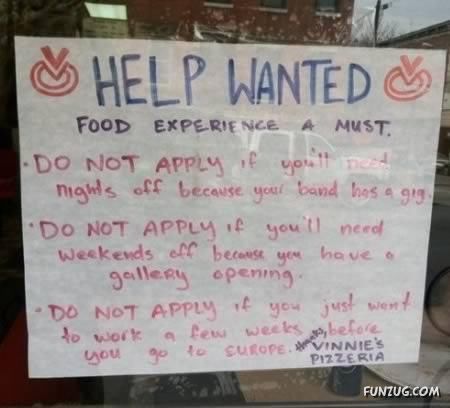 HELP WANTED
FOOD EXPERIENCE A MUST.
• DO NOT APPLY if you'll need
nights off because your band has a gig.
• DO NOT APPLY if you'll need
weekends off because you have a
gallery opening.
• DO NOT APPLY if you just want
to work a few weeks before
you go to EUROPE. thanks, VINNIE'S
PIZZERIA
FUNZUG.COM